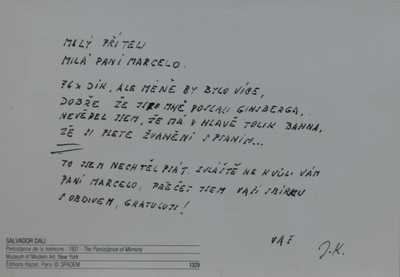 MILÝ PŘÍTELI
MILÁ PANÍ MARCELO.
76x DÍK, ALE MÉNĚ BY BYLO VÍCE,
DOBŘE ŽE JSTE MNĚ POSLALI GINSBERGA,
NEVĚDĚL JSEM, ŽE MÁ V HLAVĚ TOLIK BAHNA,
ŽE SI PLETE ŽVANĚNÍ S PSANÍM...
TO JSEM NECHTĚL PSÁT, ZVLÁŠTĚ NE KVŮLI VÁM
PANÍ MARCELO, PŘEČET JSEM VAŠI SBÍRKU
S OBDIVEM, GRATULUJI!
VÁŠ
J.K.
SALVADOR DALI
Persistance de la mémoire - 1931 - The Persistence of Memory
Museum of Modern Art, New York
Éditions Hazan, Paris © SPADEM